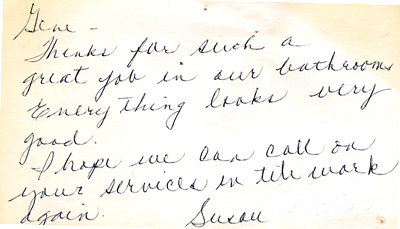 Gene -
Thanks for such a
great job in our bathrooms
Everything looks very
good.
I hope we can call on
your services in tile work
again. Susan